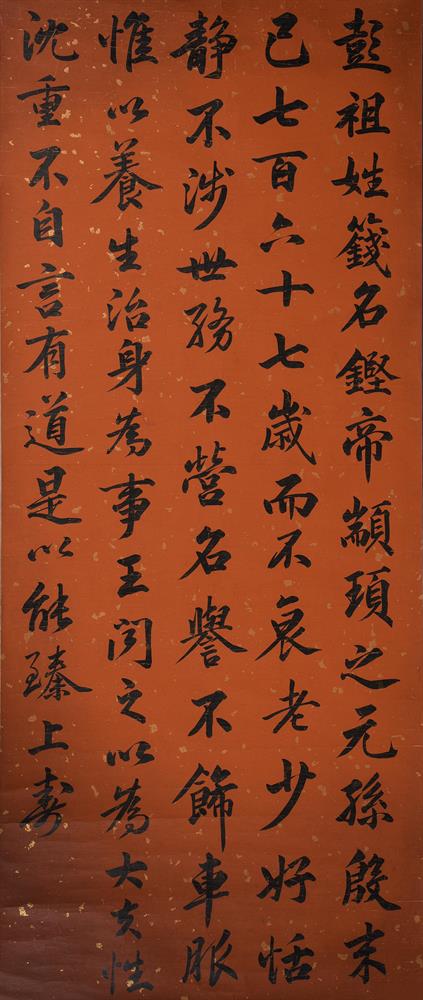 彭祖姓籛名鏗帝顓頊之元孫殷末
已七百六十七歲而不衰老少好恬
靜不涉世務不營名譽不飾車服
惟以養生治身為事王聞之以為大夫性
沈重不自言有道是以能臻上壽